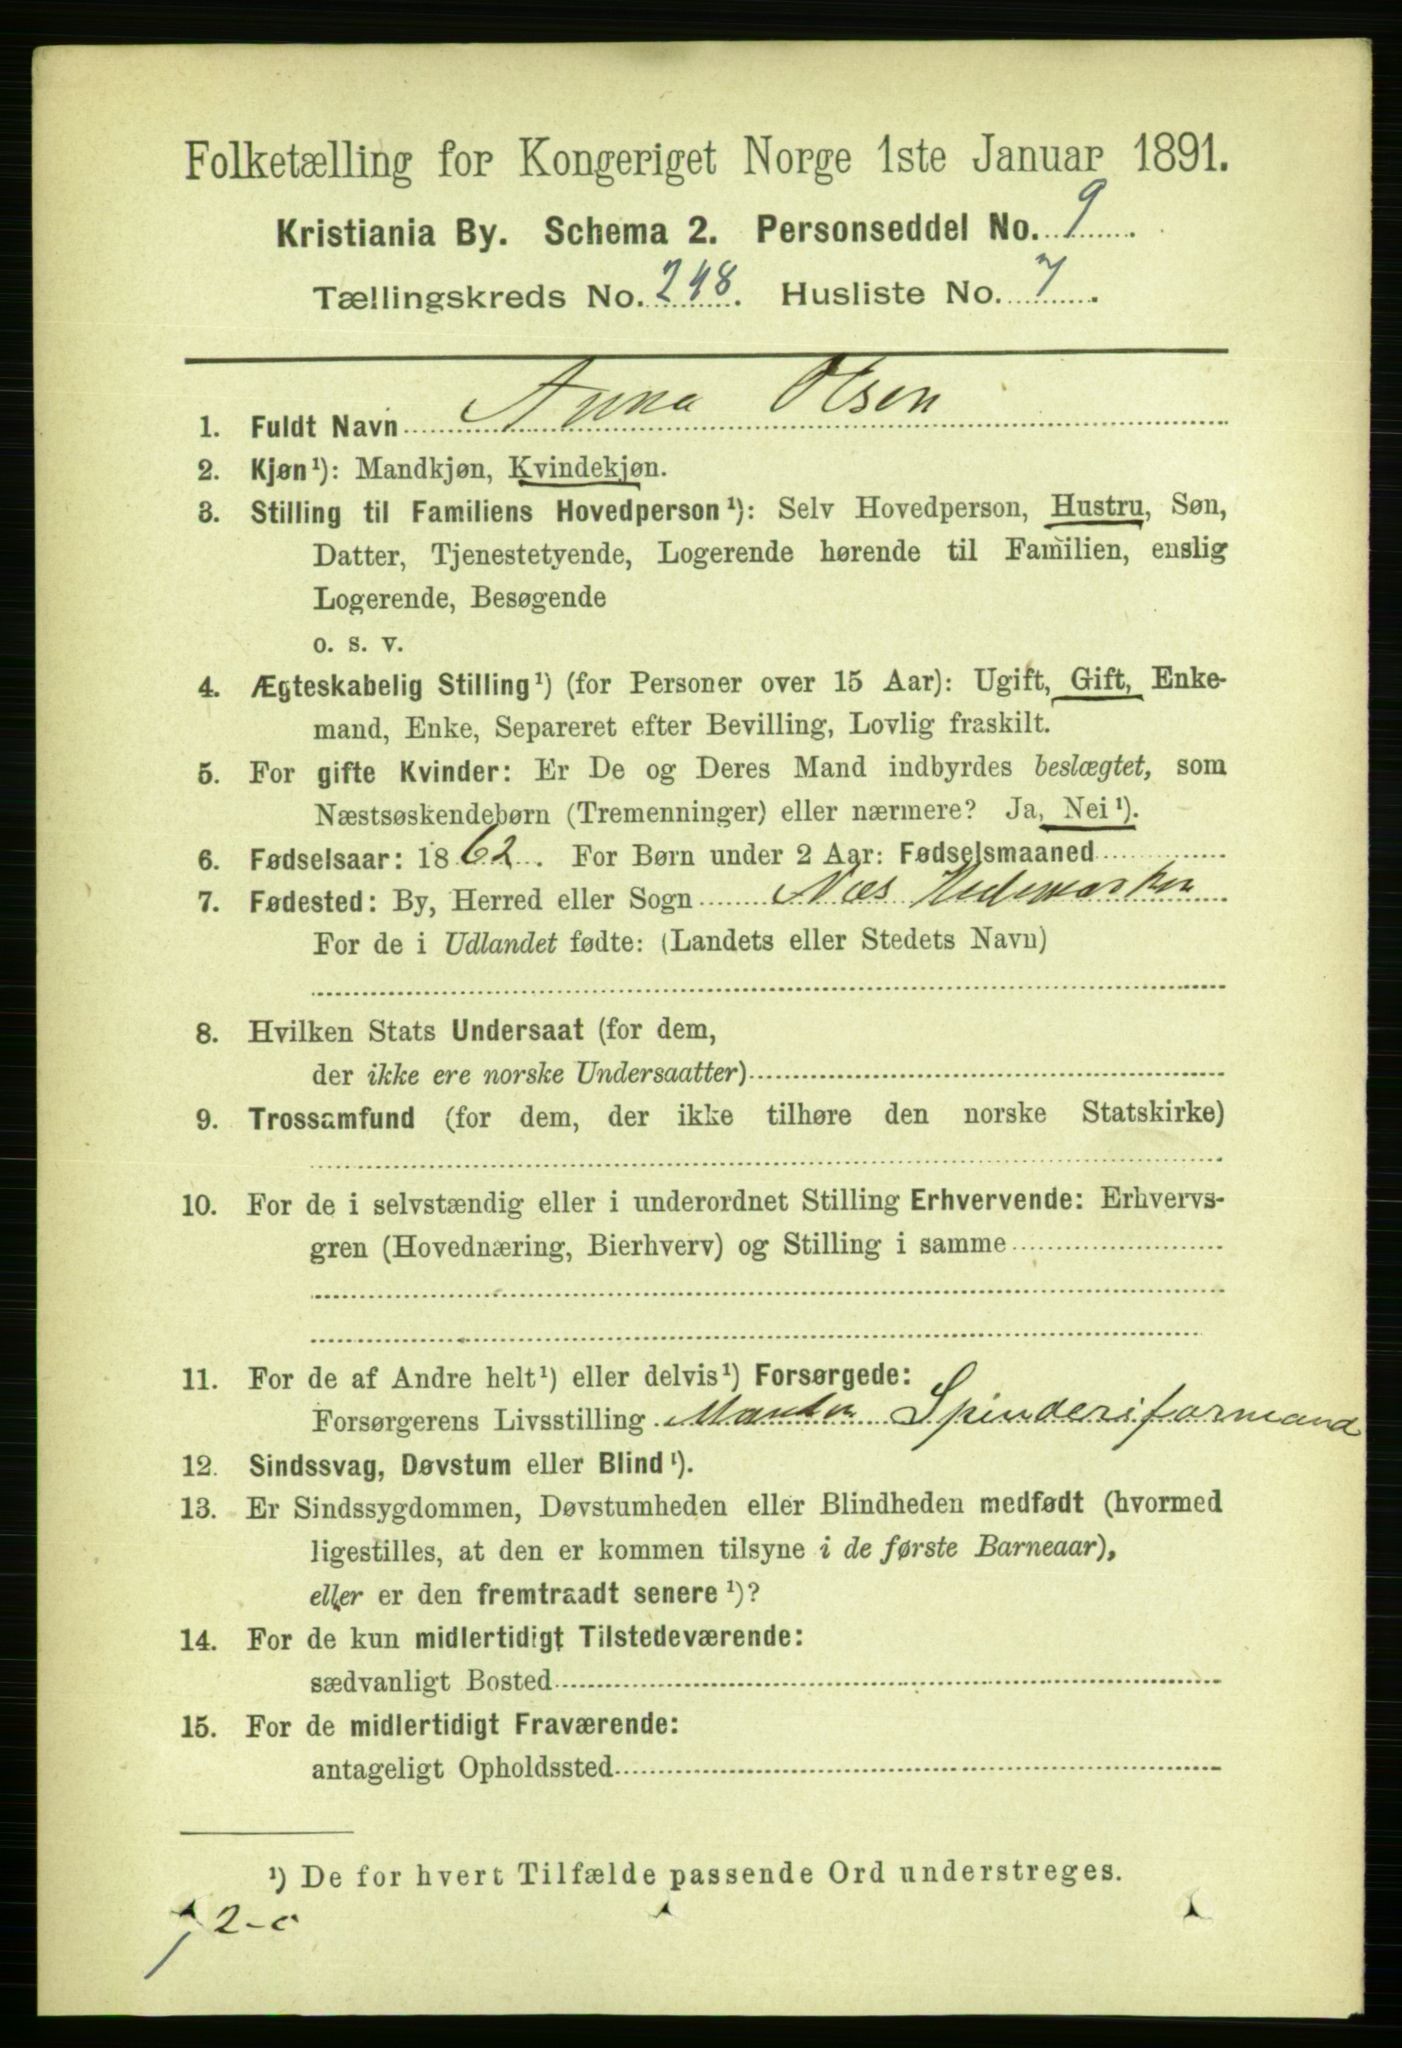 Folketælling for Kongeriget Norge 1ste Januar 1891.
Kristiania By. Schema 2. Personseddel No. 9.
Tællingskreds No. 248. Husliste No. 7.
1. Fuldt Navn Anna Olsen
2. Kjøn¹): Mandkjøn, Kvindekjøn.
3. Stilling til Familiens Hovedperson¹): Selv Hovedperson, Hustru, Søn,
Datter, Tjenestetyende, Logerende hørende til Familien, enslig
Logerende, Besøgende
o. s. v.
4. Ægteskabelig Stilling¹) (for Personer over 15 Aar): Ugift, Gift, Enke-
mand, Enke, Separeret efter Bevilling, Lovlig fraskilt.
5. For gifte Kvinder: Er De og Deres Mand indbyrdes beslægtet, som
Næstsøskendebørn (Tremenninger) eller nærmere? Ja, Nei¹).
6. Fødselsaar: 1862. For Børn under 2 Aar: Fødselsmaaned
7. Fødested: By, Herred eller Sogn Næs Hedemarken
For de i Udlandet fødte: (Landets eller Stedets Navn)
8. Hvilken Stats Undersaat (for dem,
der ikke ere norske Undersaatter)
9. Trossamfund (for dem, der ikke tilhøre den norske Statskirke)
10. For de i selvstændig eller i underordnet Stilling Erhvervende: Erhvervs-
gren (Hovednæring, Bierhverv) og Stilling i samme
11. For de af Andre helt¹) eller delvis¹) Forsørgede:
Forsørgerens Livsstilling Manden Spinderiformand
12. Sindssvag, Døvstum eller Blind¹).
13. Er Sindssygdommen, Døvstumheden eller Blindheden medfødt (hvormed
ligestilles, at den er kommen tilsyne i de første Barneaar),
eller er den fremtraadt senere¹)?
14. For de kun midlertidigt Tilstedeværende:
sædvanligt Bosted
15. For de midlertidigt Fraværende:
antageligt Opholdssted
¹) De for hvert Tilfælde passende Ord understreges.
2-0